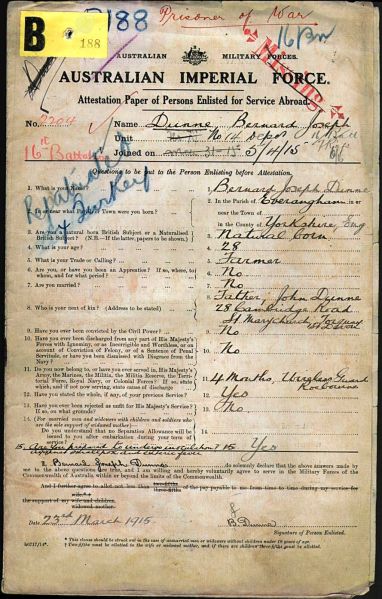 B 188
188
Prisoner of War
16 Bn
AUSTRALIAN MILITARY FORCES.
AUSTRALIAN IMPERIAL FORCE.
Missing
Attestation Paper of Persons Enlisted for Service Abroad.
No. 2204 Name Dunne, Bernard Joseph
Unit No 14 Depot
16th Battalion Joined on 5/4/15
Turkey
Questions to be put to the Person Enlisting before Attestation.
1. What is your Name? 1. Bernard Joseph Dunne
2. In or near what Parish or Town were you born? 2. In the Parish of Everingham in or
near the Town of
in the County of Yorkshire, Eng
3. Are you a natural born British Subject or a Naturalised
British Subject? (N.B.—If the latter, papers to be shown.) 3. Natural born
4. What is your age? 4. 28
5. What is your Trade or Calling? 5. Farmer
6. Are you, or have you been an Apprentice? If so, where, to
whom, and for what period? 6. No
7. Are you married? 7. No
8. Who is your next of kin? (Address to be stated) 8. Father, John Dunne
28 Cambridge Road
St Marychurch, Torquay
9. Have you ever been convicted by the Civil Power? 9. No
10. Have you ever been discharged from any part of His Majesty's
Forces with Ignominy, or as Incorrigible and Worthless, or on
account of Conviction of Felony, or of a Sentence of Penal
Servitude, or have you been dismissed with Disgrace from the
Navy? 10. No
11. Do you now belong to, or have you ever served in, His Majesty's
Army, the Marines, the Militia, the Militia Reserve, the Territorial
Force, Royal Navy, or Colonial Forces? If so, state
which, and if not now serving, state cause of discharge 11. 4 Months, Guard
Roebourne
12. Have you stated the whole, if any, of your previous Service? 12. Yes
13. Have you ever been rejected as unfit for His Majesty's Service?
If so, on what grounds? 13. No
14. (For married men and widowers with children and soldiers who
are the sole support of widowed mother)—
Do you understand that no Separation Allowance will be
issued to you after embarkation during your term of
service? 14.
15. Are you prepared to undergo inoculation 15 Yes
against smallpox and enteric fever
I, Bernard Joseph Dunne do solemnly declare that the above answers made by
me to the above questions are true, and I am willing and hereby voluntarily agree to serve in the Military Forces of the
Commonwealth of Australia within or beyond the limits of the Commonwealth.
And I further agree to allot not less than of the pay payable to me from time to time during my service for
the support of my wife and children.
widowed mother.
Date 23rd March 1915. B. J. Dunne
Signature of Person Enlisted.
* This clause should be struck out in the case of unmarried men or widowers without children under 18 years of age.